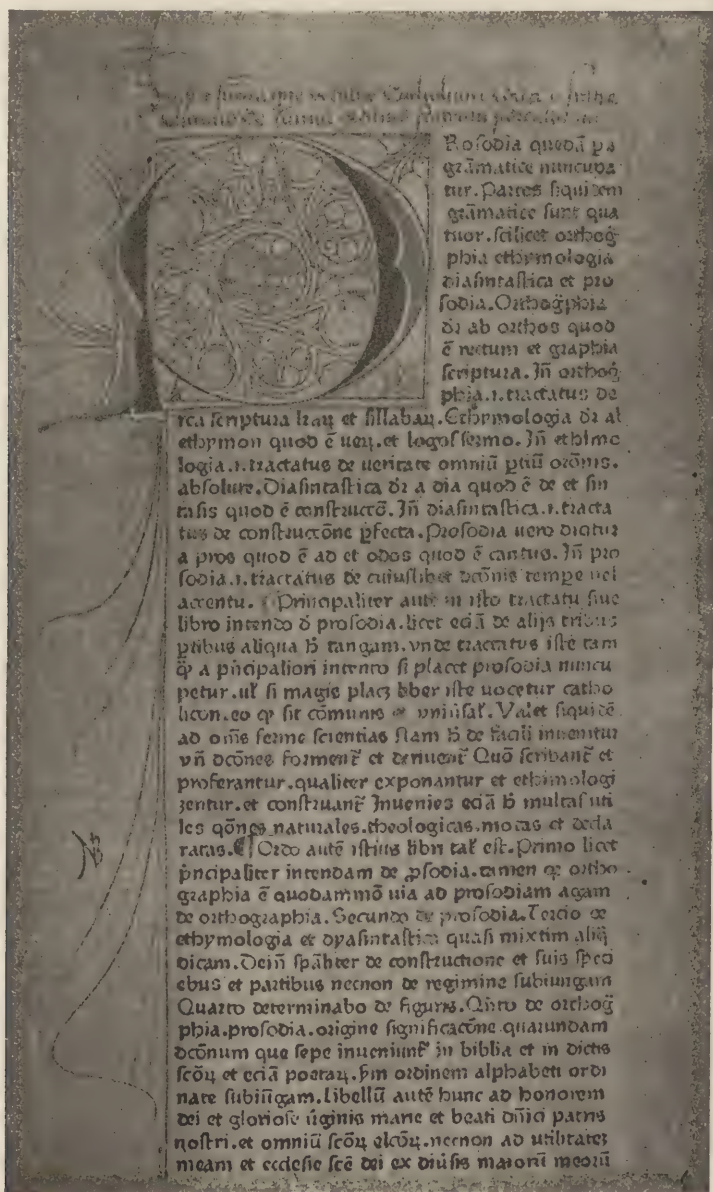 Rosodia quedã pa
grãmatice nuncupa
tur. Partes siquidem
grãmatice sunt qua
tuor. scilicet orthog̃
phia ethymologia
diasintastica et pro
sodia. Orthog̃phia
dr̃ ab orthos quod
ẽ rectum et graphia
scriptura. Jñ orthog̃
phia .ı. tractatus de
rca scriptura lr̃aꝝ et sillabaꝝ. Ethymologia dr̃ al
ethymon quod ẽ ueꝝ. et logos sermo. Jñ ethimo
logia .ı. tractatus de ueritate omniũ ꝑtiũ or̃onis.
absolute. Diasintastica dr̃ a dia quod ẽ de et sin
tasis quod ẽ construccõ. Jñ diasintastica .ı. tracta
tus de construccõne ꝑfecta. Prosodia uero dicitur
a pros quod ẽ ad et odos quod ẽ cantus. Jñ pro
sodia .ı. tractatus de cuiuslibet dcõnis tempe uel
accentu. Principaliter autẽ in isto tractatu siue
libro intendo d̓ prosodia. licet eciã de alijs tribus
ꝑtibus aliqua h̓ tangam. vnde tractatus iste tam
ꝙ a pñcipaliori intento si placet prosodia nuncu
petur. ul̓ si magis plac̓ liber iste uocetur catho
licon. eo ꝙ sit cõmunis ⁊ vniũsal̓. Valet siquidẽ
ad om̃s ferme scientias. Nam h̓ de facili inuenitur
vñ dcõnes forment̃ et deriuent̃ Quõ scribant̃ et
proferantur. qualiter exponantur et ethimologi
zentur. et construant̃ Jnuenies eciã h̓ multas uti
les qõnes naturales. theologicas. motas et decla
ratas. ¶ Ordo autẽ istius libri tal̓ est. Primo licet
pñcipaliter intendam de ꝓsodia. tamen qꝛ ortho
graphia ẽ quodammõ uia ad prosodiam agam
de orthographia. Secundo de prosodia. Tercio de
ethymologia et dyasintastica quasi mixtim aliq̃
dicam. Deiñ spãliter de constructione et suis speci
ebus et partibus necnon de regimine subiungam
Quarto determinabo de figuris. Q̃nto de orthog̃
phia. prosodia. origine significacõne quarundam
dcõnum que sepe inueniunt̃ in biblia et in dictis
scõꝝ et eciã poetaꝝ. ẜm ordinem alphabeti ordi
nate subiũgam. Libellũ autẽ hunc ad honorem
dei et gloriose ũginis marie et beati dñici patris
nostri. et omniũ scõꝝ elcõꝝ. necnon ad utilitatez
meam et ecclesie scẽ dei ex diũsis maiorũ meorũ